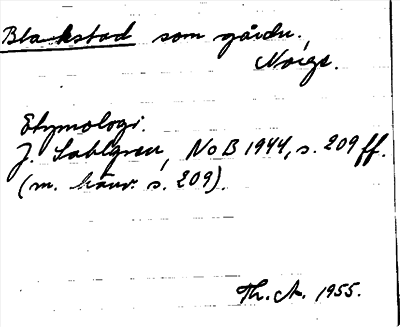 Blakstad som gårdn.,
Norge.
Etymologi.
J. Sahlgren, NoB 1944, s. 209 ff.
(m. hänv. s. 209).
Th. A. 1955.